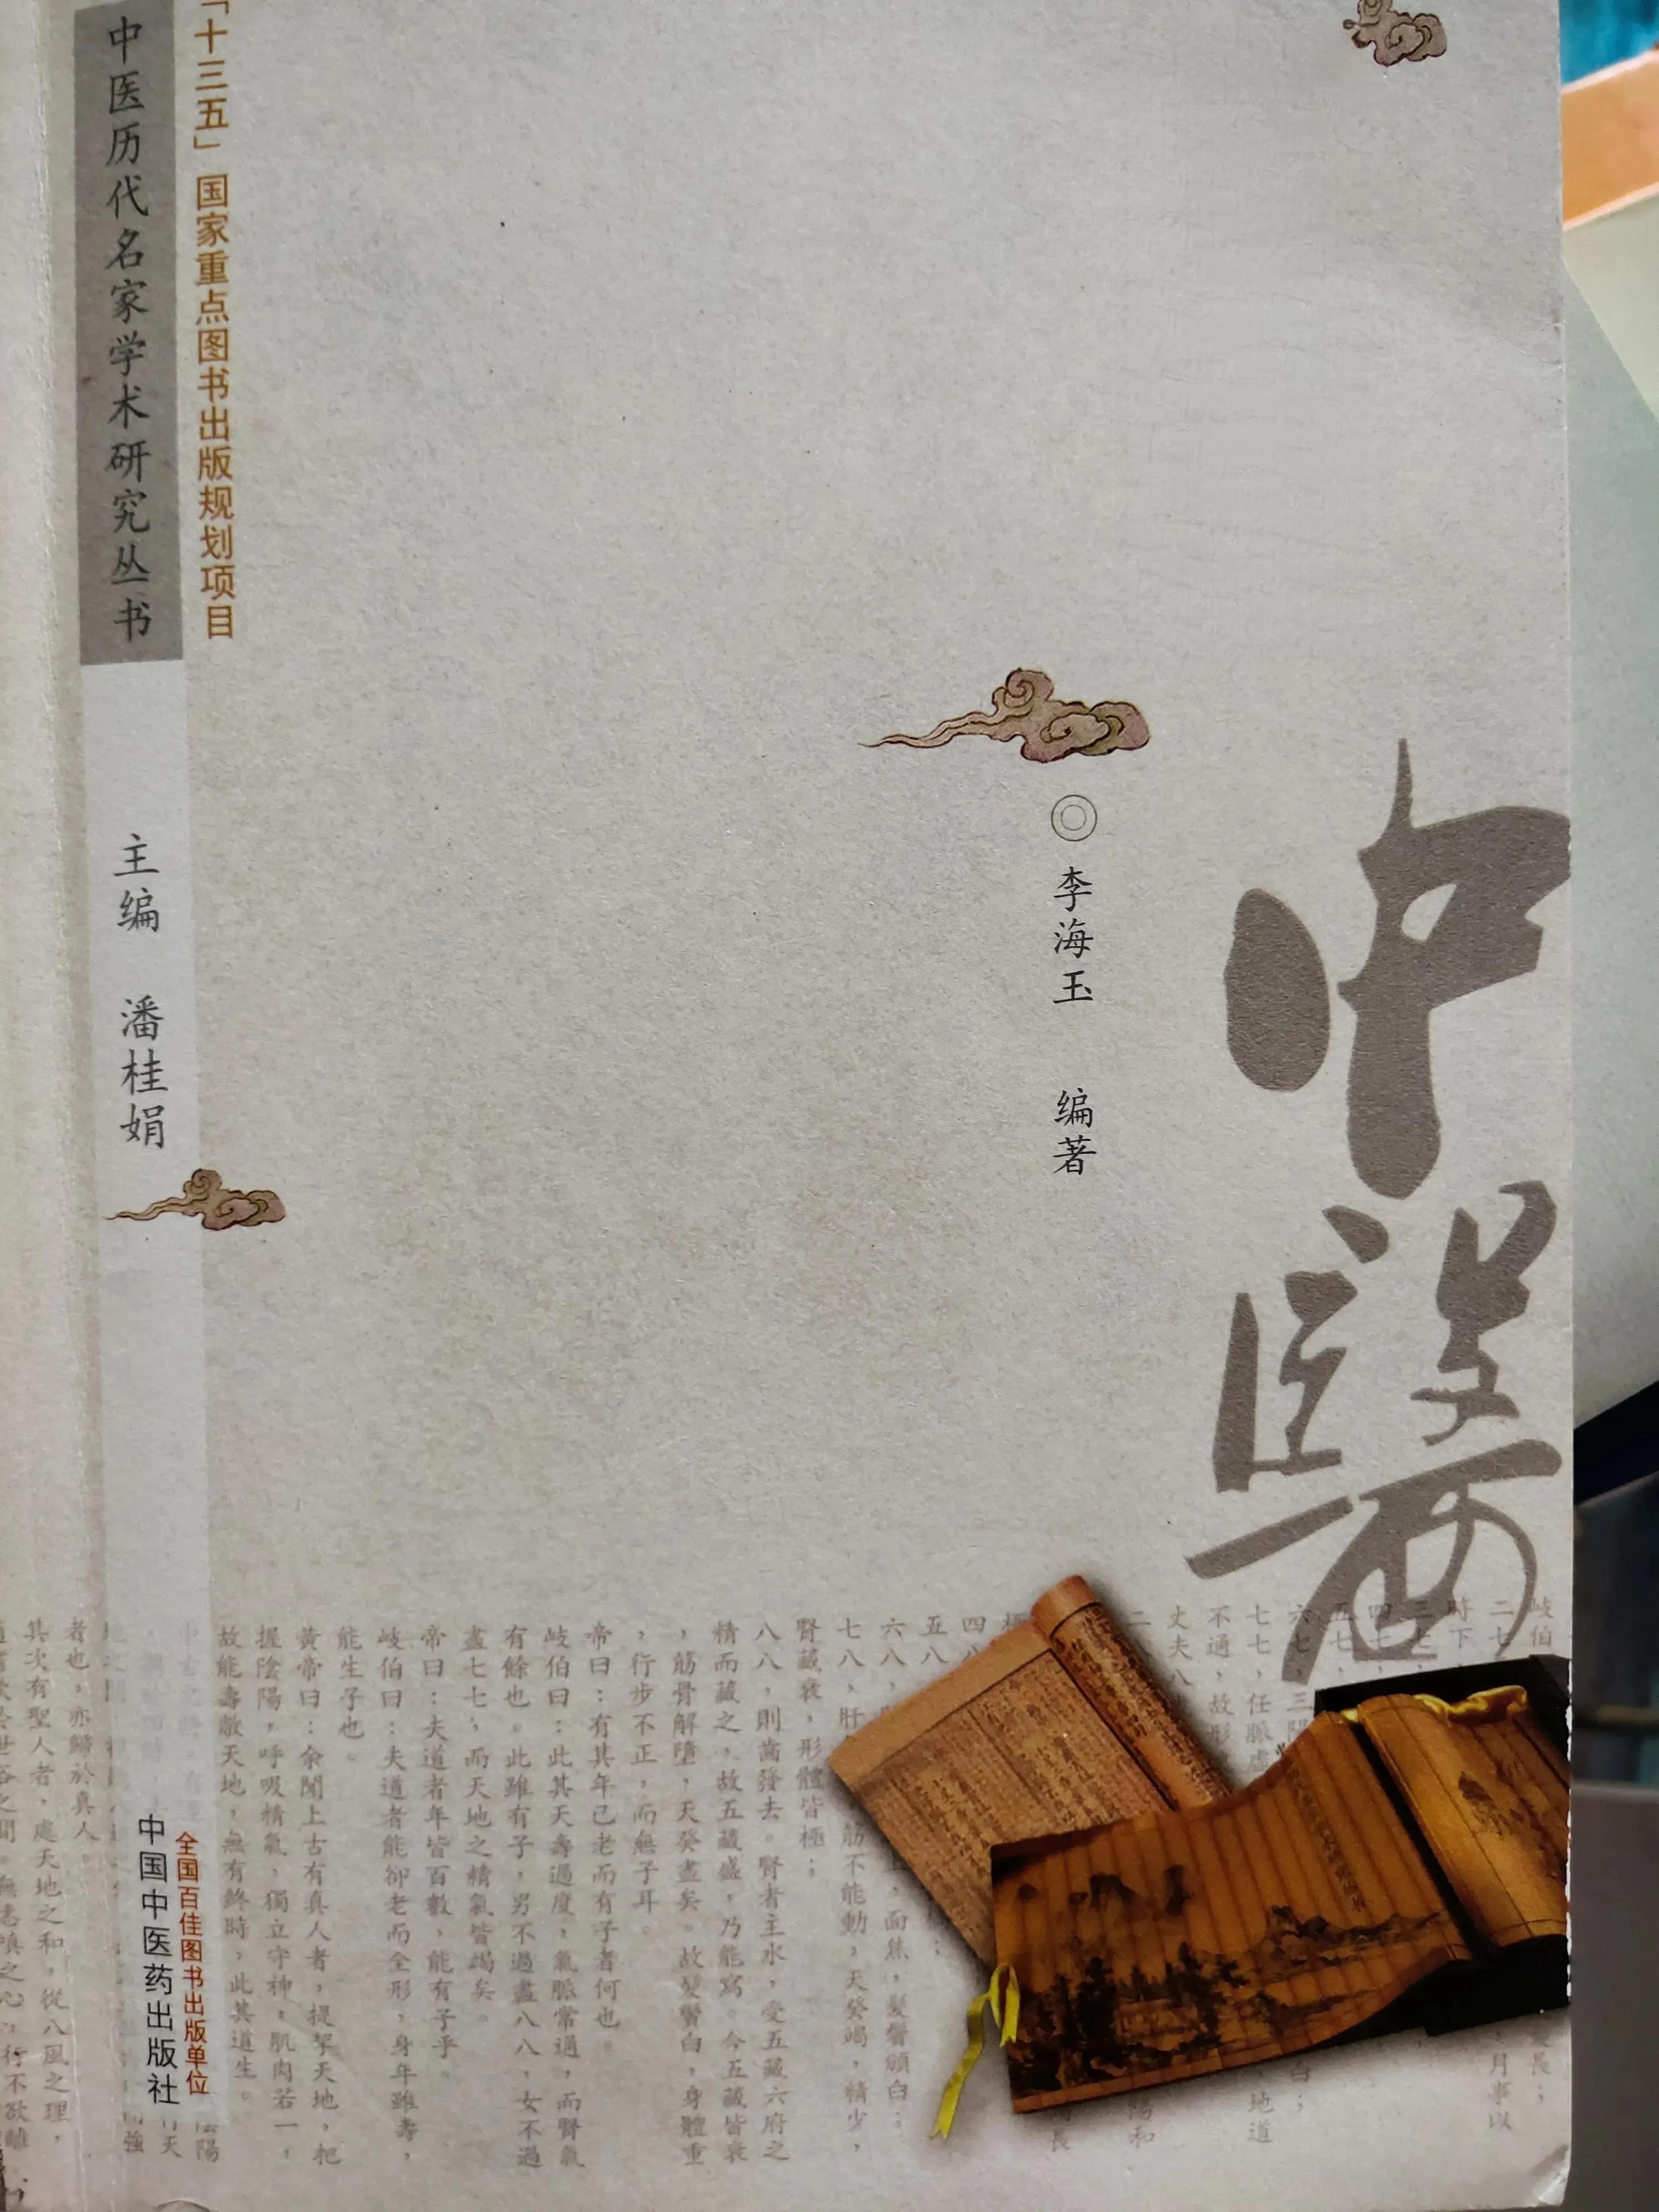 「十三五」国家重点图书出版规划项目
中医历代名家学术研究丛书
主编 潘桂娟
◎李海玉 编著
中醫
七八，肝
筋不能動，天癸竭，精少，
腎藏衰，形體皆極；
八八，則齒發去。腎者主水，受五藏六府之
精而藏之，故五藏盛，乃能寫。今五藏皆衰
，筋骨解墮，天癸盡矣。故髮鬢白，身體重
，行步不正，而無子耳。
帝曰：有其年已老而有子者何也。
岐伯曰：此其天壽過度，氣脈常通，而腎氣
有餘也。此雖有子，男不過盡八八，女不過
盡七七，而天地之精氣皆竭矣。
帝曰：夫道者年皆百數，能有子乎。
岐伯曰：夫道者能卻老而全形，身年雖壽，
能生子也。
黃帝曰：余聞上古有真人者，提挈天地，把
握陰陽，呼吸精氣，獨立守神，肌肉若一，
故能壽敝天地，無有終時，此其道生。
者也，亦歸於真人。
其次有聖人者，處天地之和，從八風之理，
全国百佳图书出版单位
中国中医药出版社